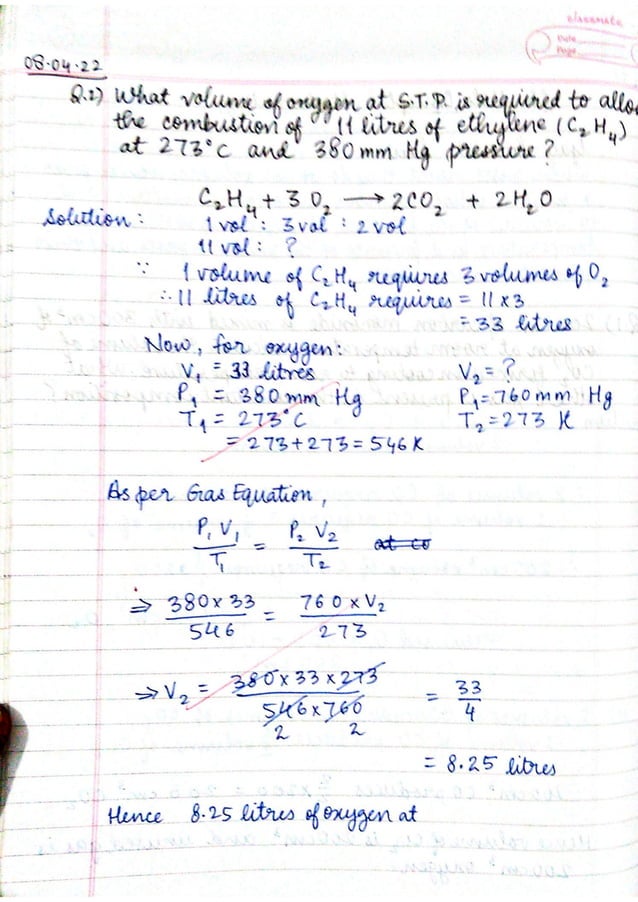 classmate
Date
Page
08.04.22
Q.2) What volume of oxygen at S.T.P. is required to allo
the combustion of 11 litres of ethylene (C₂H₄)
at 273°C and 380 mm Hg pressure?
C₂H₄ + 3O₂ → 2CO₂ + 2H₂O
Solution: 1 vol : 3 vol : 2 vol
11 vol : ?
∵ 1 volume of C₂H₄ requires 3 volumes of O₂
∴ 11 litres of C₂H₄ requires = 11 x 3
= 33 litres
Now, for oxygen:
V₁ = 33 litres V₂ = ?
P₁ = 380 mm Hg P₁ = 760 mm Hg
T₁ = 273°C T₂ = 273 K
= 273 + 273 = 546 K
As per Gas Equation,
P₁ V₁ / T₁ = P₂ V₂ / T₂
⇒ 380 x 33 / 546 = 760 x V₂ / 273
⇒ V₂ = 380 x 33 x 273 / 546 x 760 = 33 / 4
2 2
= 8.25 litres
Hence 8.25 litres of oxygen at